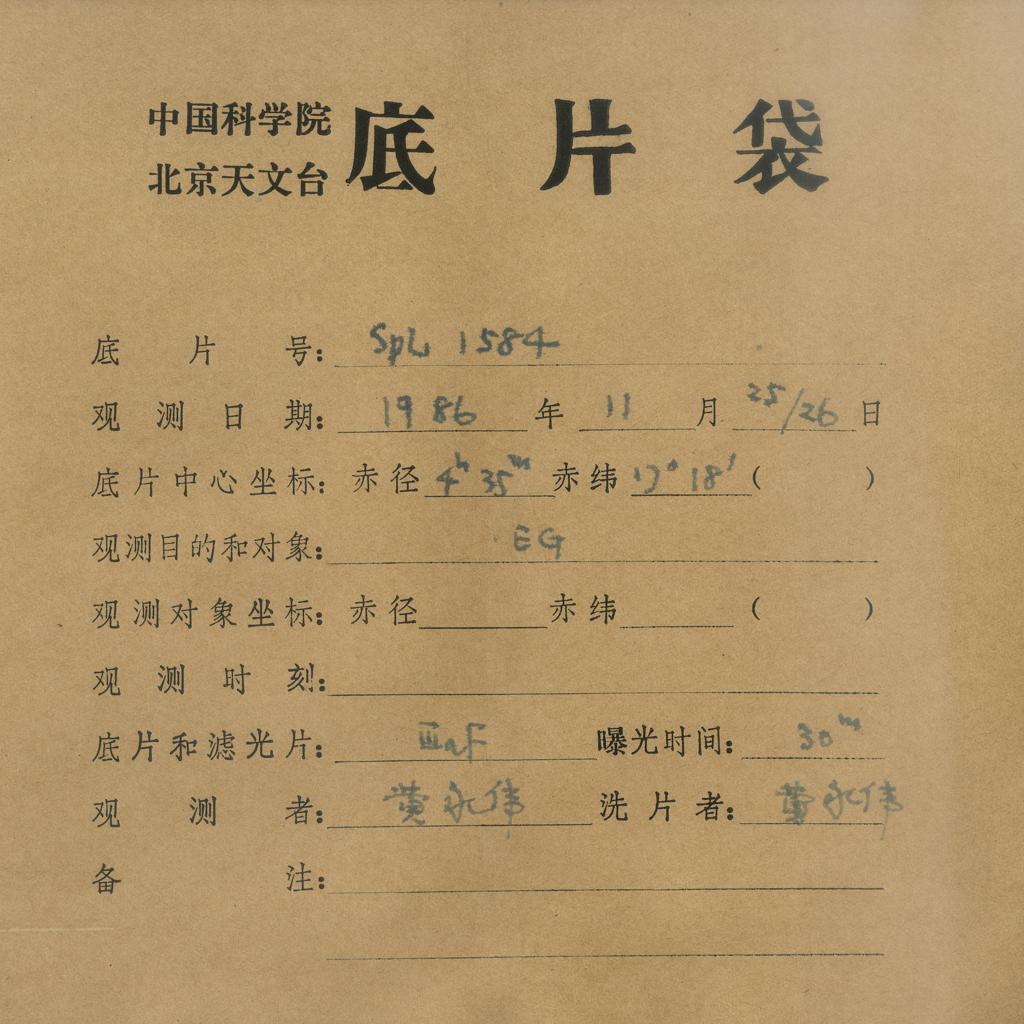 中国科学院
北京天文台
底片袋
底片号: SpL 1584
观测日期: 1986 年 11 月 25/26 日
底片中心坐标: 赤径 4ʰ 35ᵐ 赤纬 17° 18′ ( )
观测目的和对象: EG
观测对象坐标: 赤径 赤纬 ( )
观测时刻:
底片和滤光片: ⅢaF 曝光时间: 30ᵐ
观测者: 黄永伟 洗片者: 黄永伟
备注: